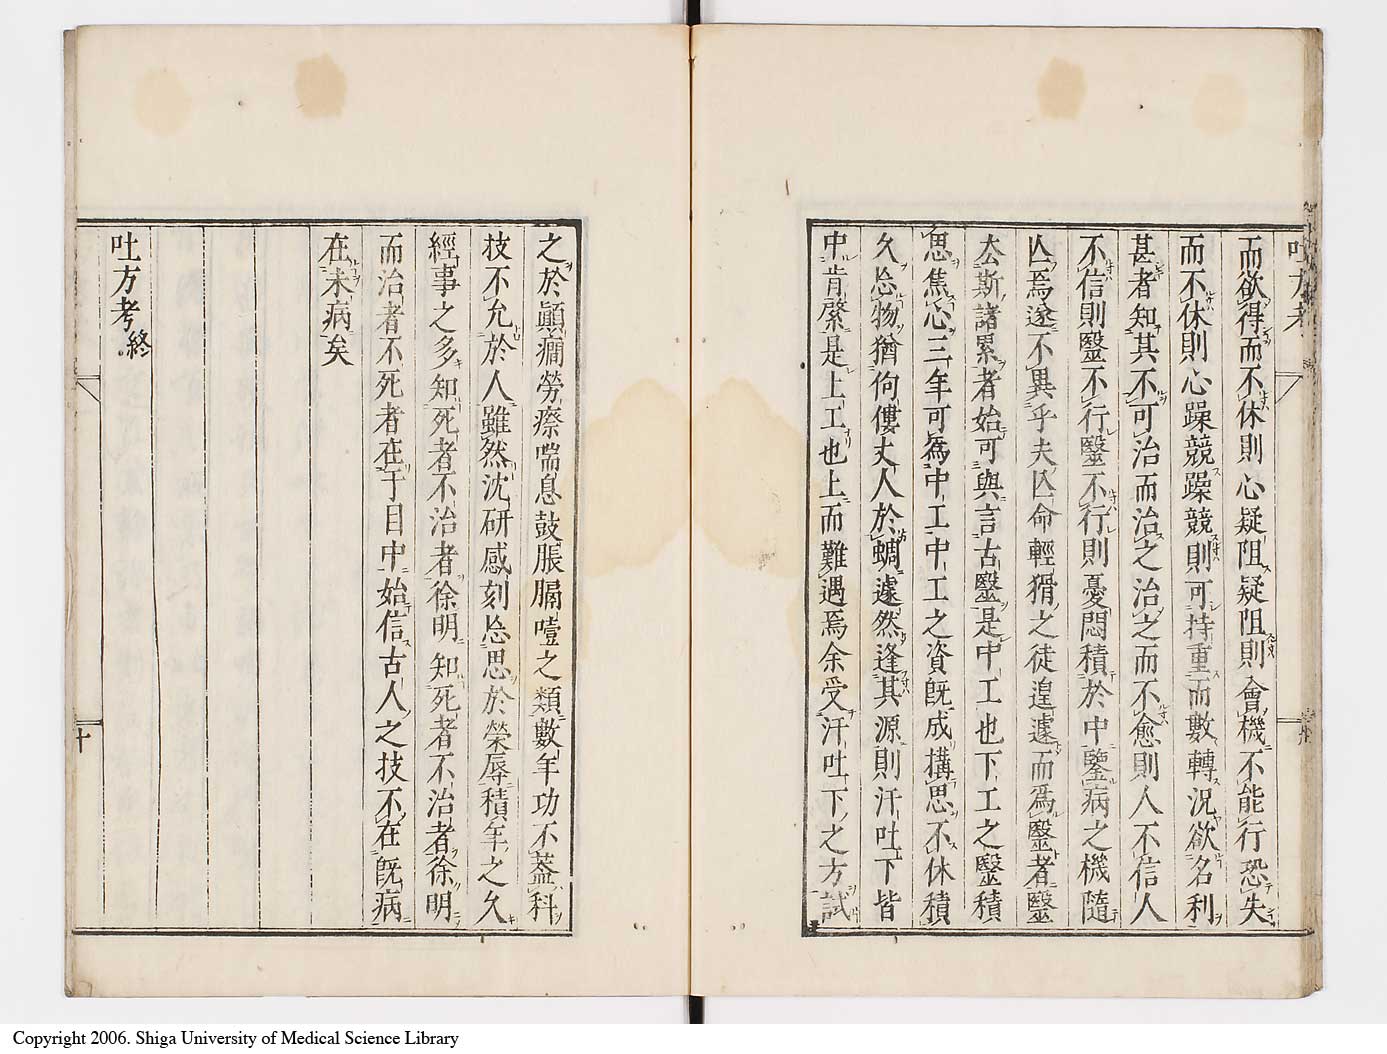 而欲得而不休則心疑阻疑阻則會機不能行恐失
而不休則心躁競躁競則可持重而數轉況欲名利
甚者知其不可治而治之治之而不愈則人不信人
不信則毉不行毉不行則憂悶積於中鑒病之機隨
亾焉遂不異乎夫亾命輕猾之徒遑遽而爲毉者毉
厺斯諸累者始可與言古毉是中工也下工之毉積
思焦心三年可爲中工中工之資旣成搆思不休積
久忘物猶佝僂丈人於蜩遽然逢其源則汗吐下皆
中肯綮是上工也上而難遇焉余受汗吐下之方試
之於顚癇勞瘵喘息鼓脹膈噎之類數年功不蓋科
技不允於人雖然沈研感刻忘思於榮辱積年之久
經事之多知死者不治者徐明知死者不治者徐明
而治者不死者在于目中始信古人之技不在旣病
在未病矣
吐方考終
十
Copyright 2006. Shiga University of Medical Science Library